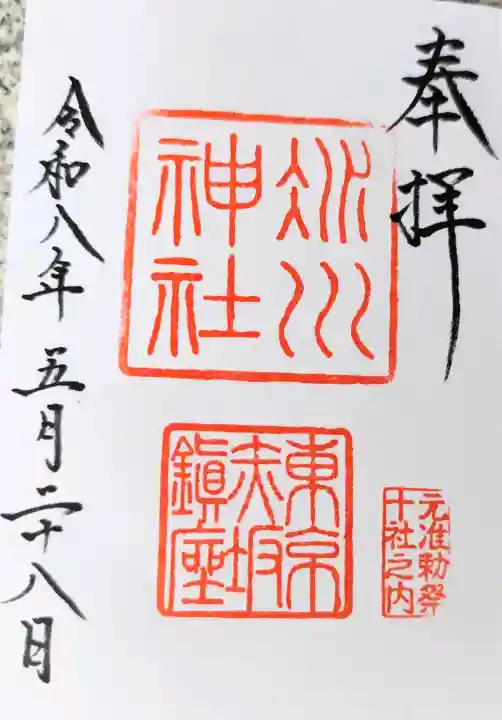 奉拝
氷川
神社
東京
赤坂
鎮座
元准勅祭
十社之内
令和八年五月二十八日